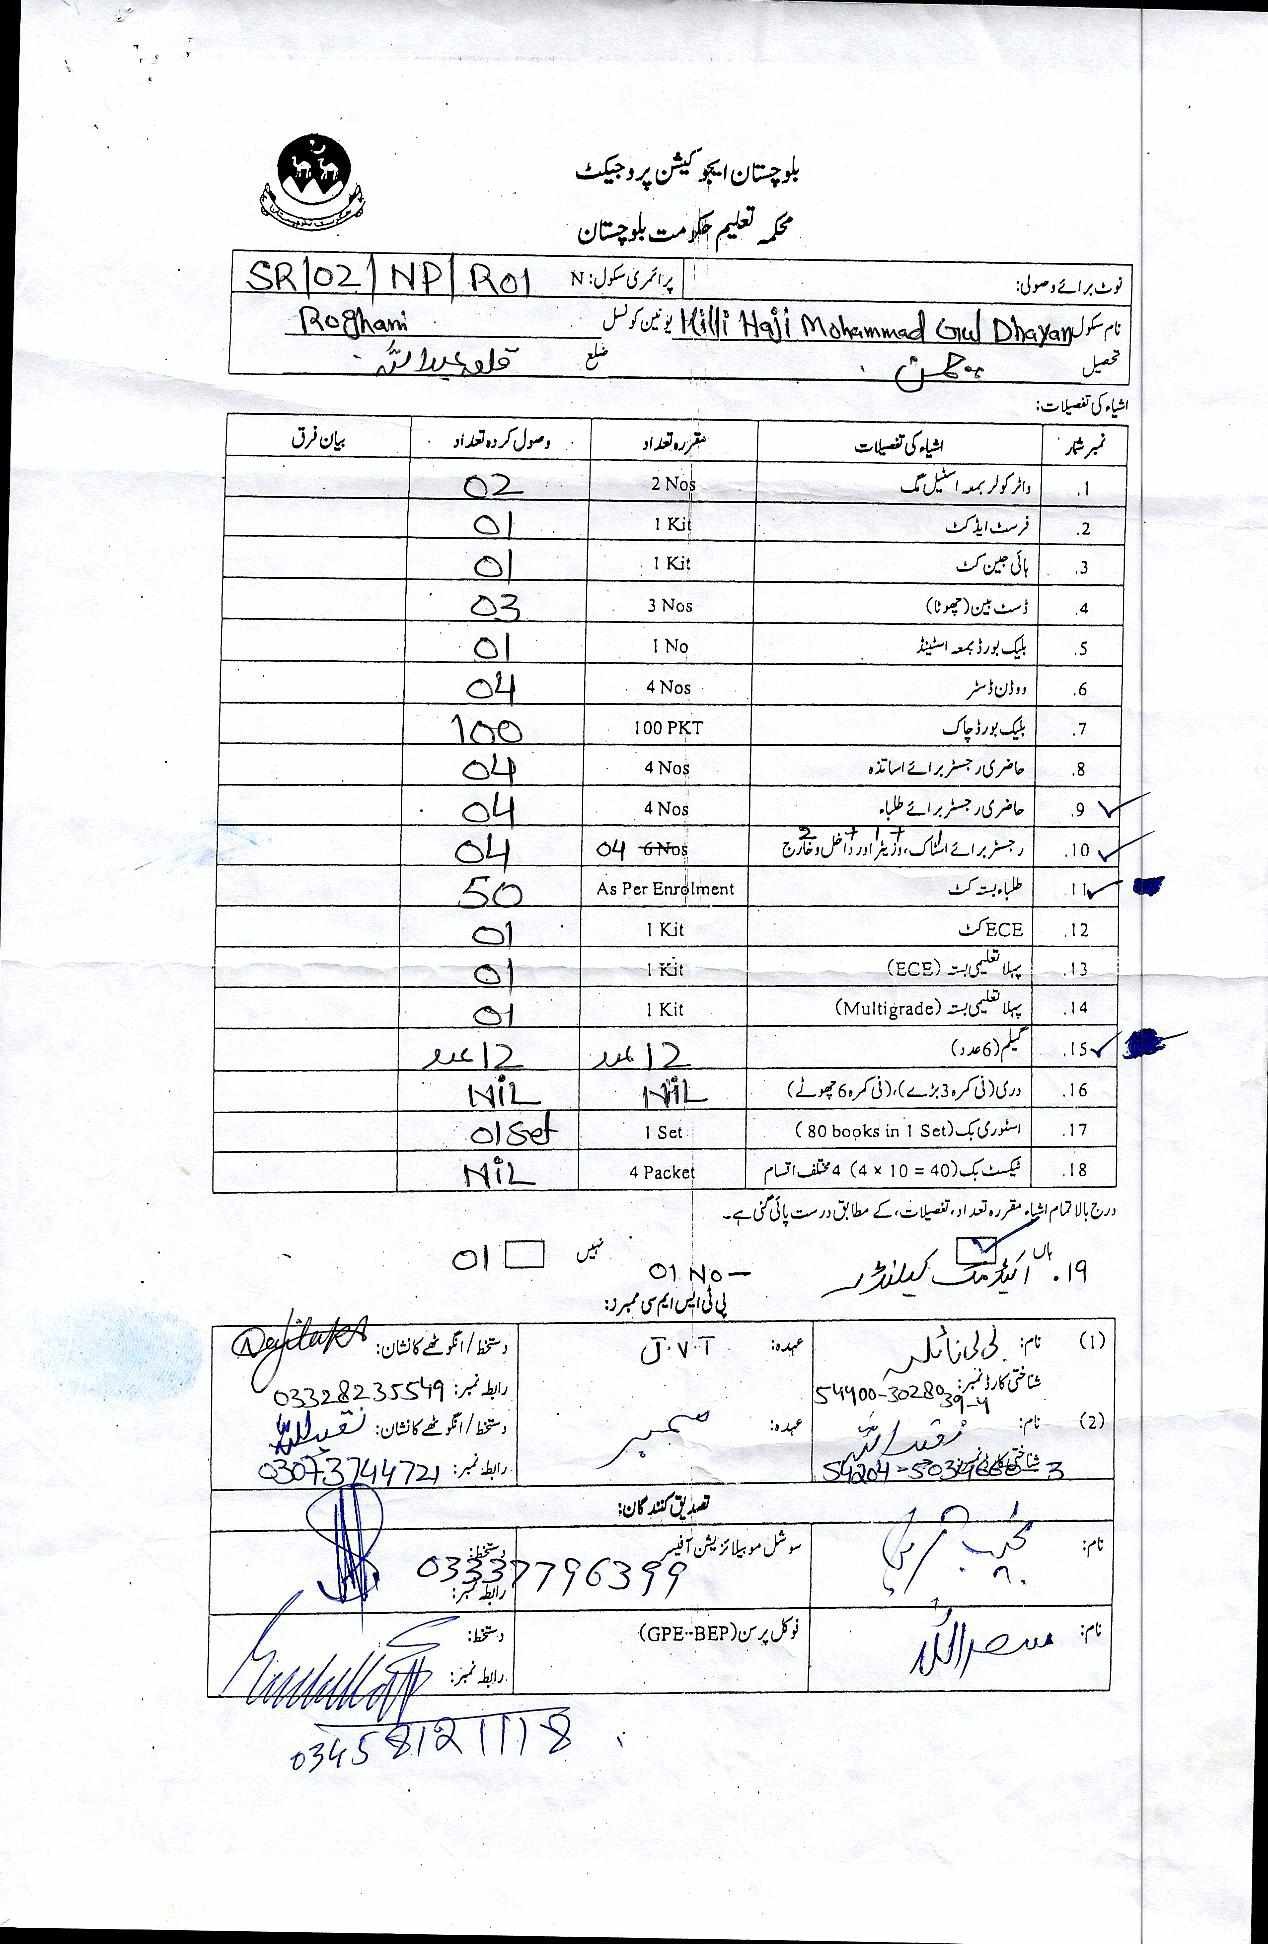 بلوچستان ایجوکیشن پروجیکٹ
محکمہ تعلیم حکومت بلوچستان
نوٹ برائے وصولی: پرائمری سکول: N SR/02/NP/R01
نام سکول Killi Haji Mohammad Gul Dhayan یونین کونسل Roghani
تحصیل چمن ضلع قلعہ عبداللہ
اشیاء کی تفصیلات:
نمبر شمار اشیاء کی تفصیلات مقررہ تعداد وصول کردہ تعداد بیان فرق
1. واٹر کولر بمعہ اسٹیل مگ 2 Nos 02
2. فرسٹ ایڈ کٹ 1 Kit 01
3. ہائی جین کٹ 1 Kit 01
4. ڈسٹ بین (چھوٹا) 3 Nos 03
5. بلیک بورڈ بمعہ اسٹینڈ 1 No 01
6. ووڈن ڈسٹر 4 Nos 04
7. بلیک بورڈ چاک 100 PKT 100
8. حاضری رجسٹر برائے اساتذہ 4 Nos 04
9. حاضری رجسٹر برائے طلباء 4 Nos 04
10. رجسٹر برائے اسٹاک، وزیٹر اور داخل و خارج 2 + 1 + 1 6 Nos 04 04
11. طلباء بستہ کٹ As Per Enrolment 50
12. ECE کٹ 1 Kit 01
13. پہلا تعلیمی بستہ (ECE) 1 Kit 01
14. پہلا تعلیمی بستہ (Multigrade) 1 Kit 01
15. گیلم (6 عدد) 12 عدد 12 عدد
16. دری (فی کمرہ 3 بڑے)، (فی کمرہ 6 چھوٹے) NiL NiL
17. اسٹوری بک (80 books in 1 Set) 1 Set 01 Set
18. ٹیکسٹ بک (4 × 10 = 40) 4 مختلف اقسام 4 Packet NiL
درج بالا تمام اشیاء مقررہ تعداد، تفصیلات، کے مطابق درست پائی گئی ہے۔
ہاں نہیں
19. اکیڈمک کیلنڈر 01 No – 01
پی ٹی ایس ایم سی ممبرز:
(1) نام: بی بی نائلہ عہدہ: J.V.T دستخط/انگوٹھے کا نشان:
شناختی کارڈ نمبر: 54400-3028039-4 رابطہ نمبر: 03328235549
(2) نام: نقیب اللہ عہدہ: ممبر دستخط/انگوٹھے کا نشان: نقیب اللہ
شناختی کارڈ نمبر: 54204-5034668-3 رابطہ نمبر: 03073744721
تصدیق کنندگان:
نام: سوشل موبیلائزیشن آفیسر دستخط:
رابطہ نمبر: 03337796399
نام: فوکل پرسن (GPE-BEP) دستخط:
رابطہ نمبر:
03458121118